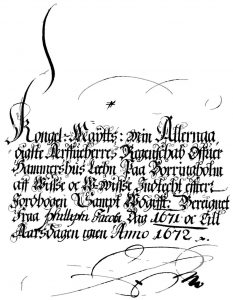 Kongel: Maÿtts: min Allernaa
digste Arffueherres Regenschab Offuer
Hammershus Leehn Paa Borringholm
aff Wisse oc W-wisse Indtecht effter
Jordbogen Sampt Wdgifft: Beregnet
Fraa Philippi Jacobi Dag 1671 oc till
Aarsdagen igien Anno 1672